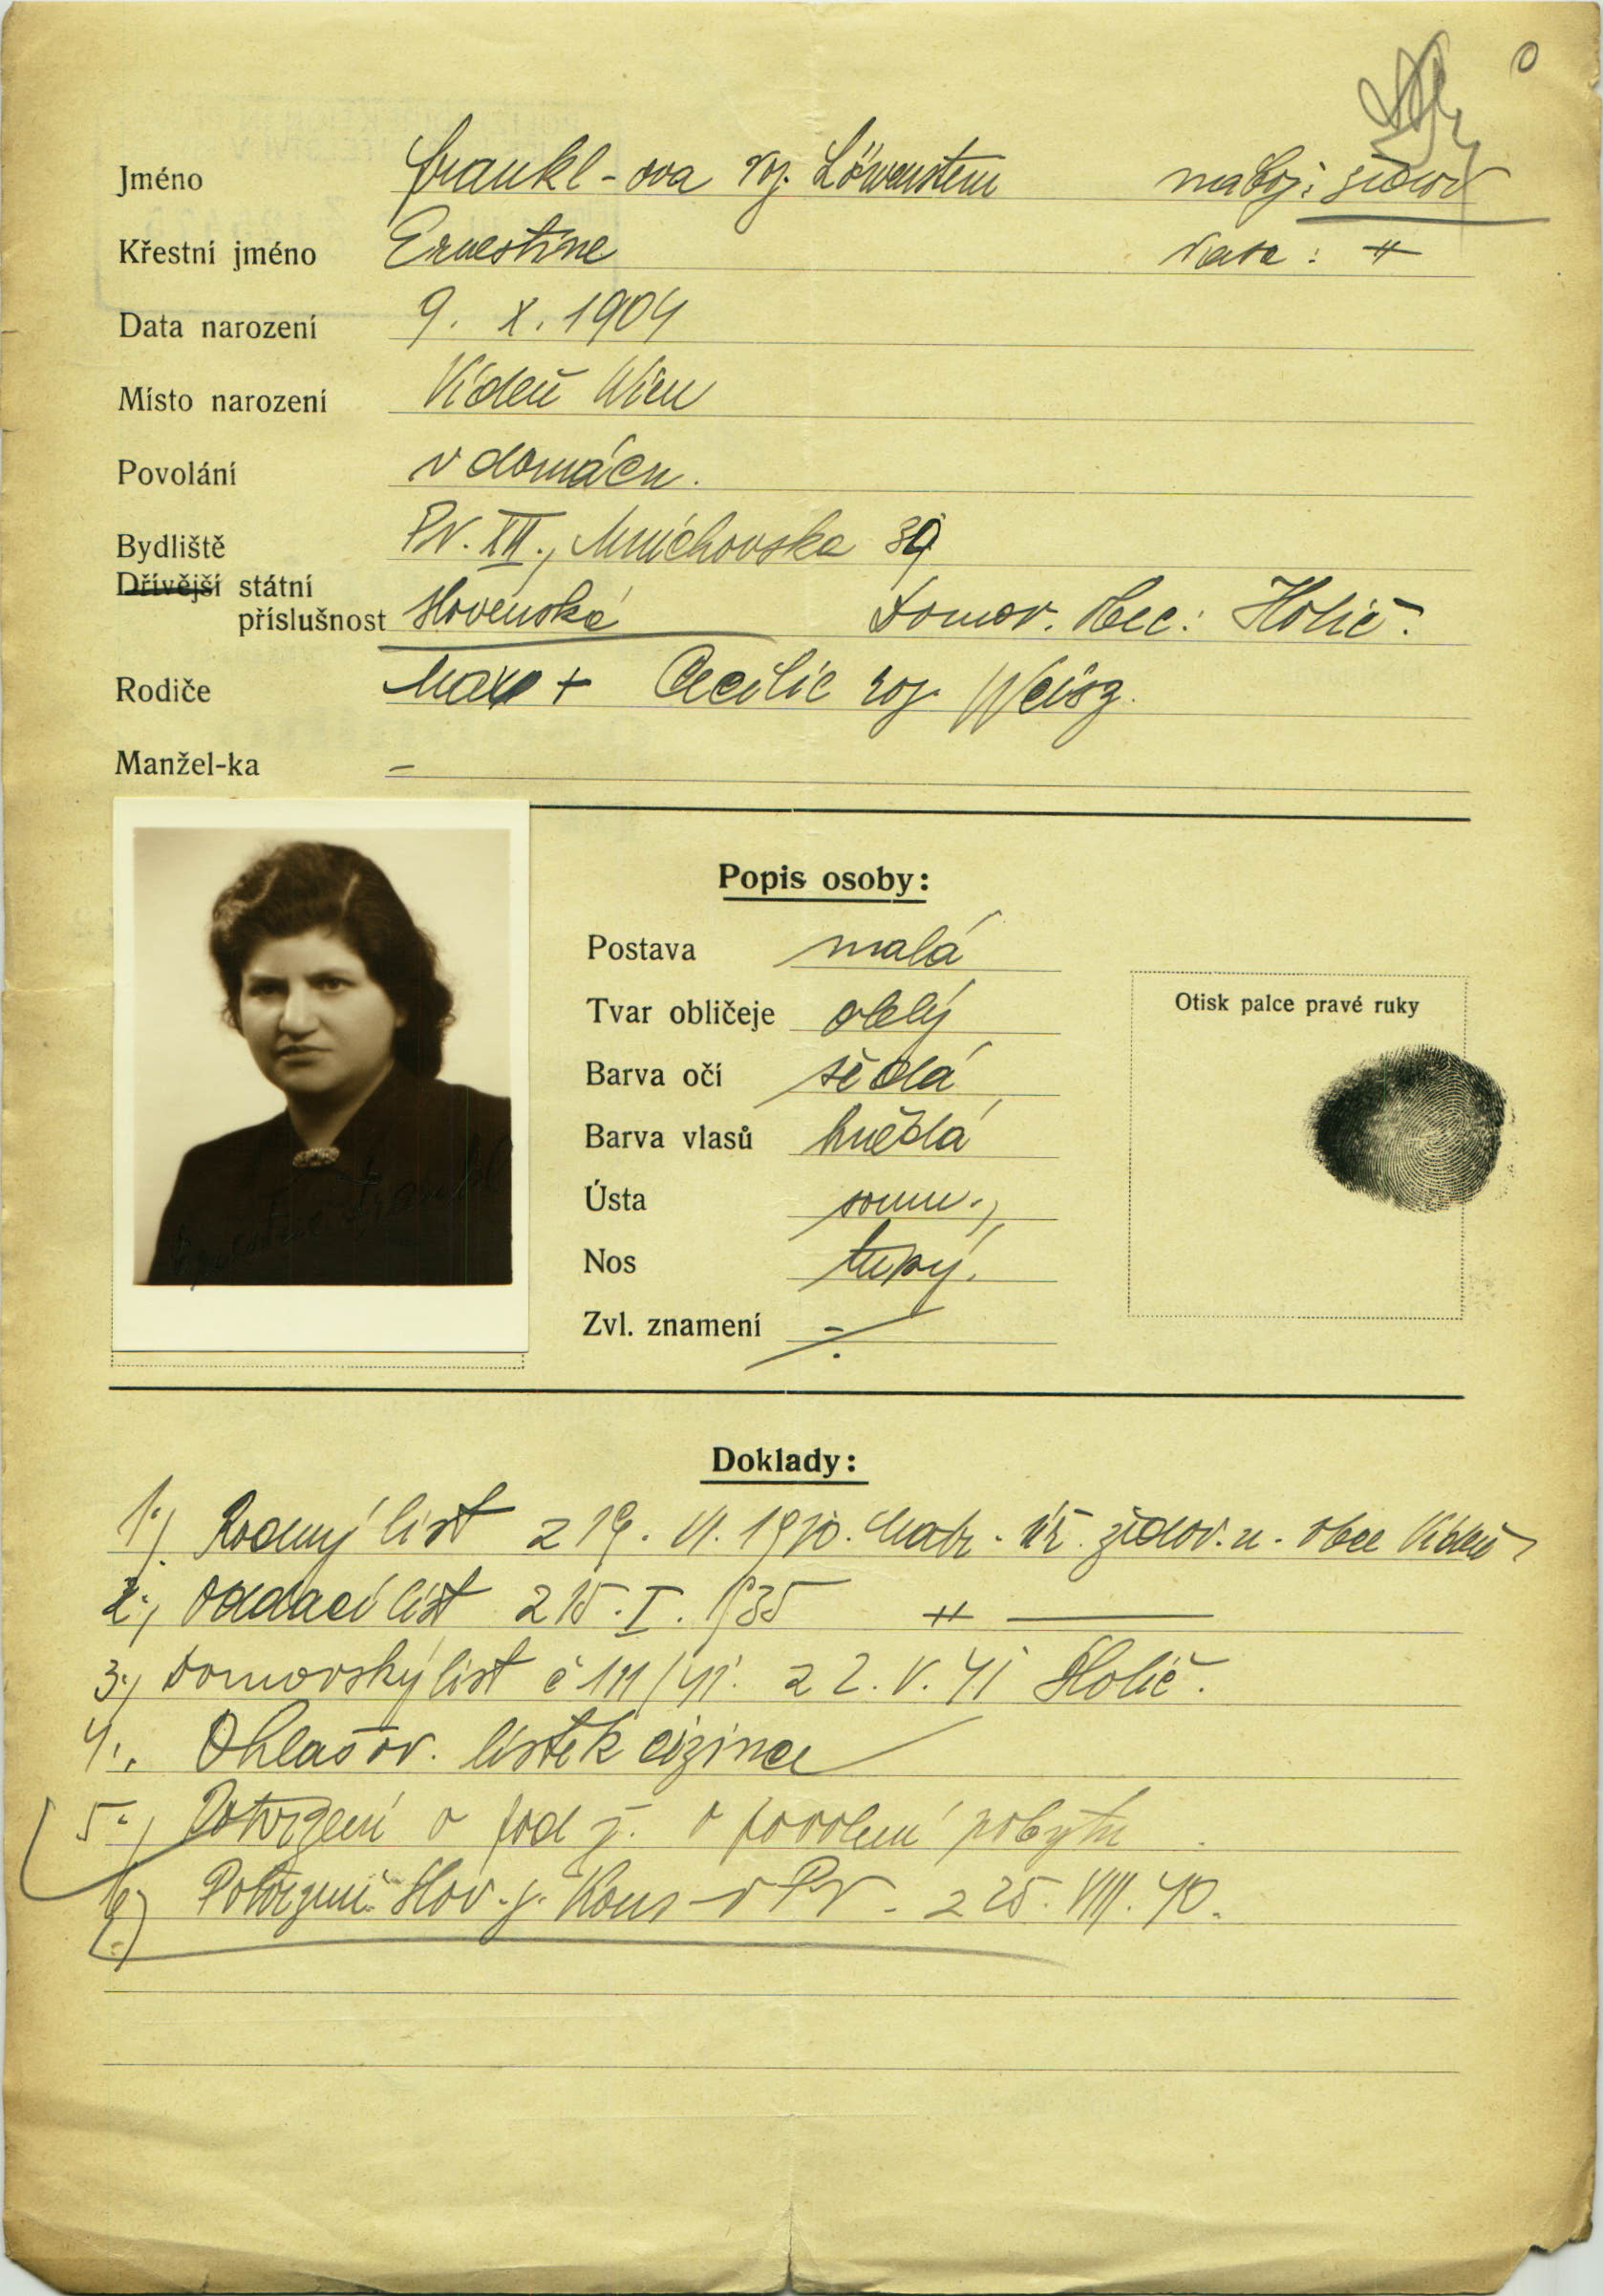 0
Jméno Frankl-ova roz. Löwenstein nábož: židov
Křestní jméno Ernestine rasa: "
Data narození 9. X. 1904
Místo narození Vídeň Wien
Povolání v domácn.
Bydliště Pr. XII., Mnichovska 39
Dřívější státní
příslušnost slovenská Domov. obec: Holič.
Rodiče Max + Cecilie roz. Weisz.
Manžel-ka –
Popis osoby:
Postava malá
Tvar obličeje oblý
Otisk palce pravé ruky
Barva očí šedá
Barva vlasů hnědá
Ústa soum.,
Nos tupý.
Zvl. znamení
Doklady:
1.) Rodný list z 19. VI. 1910. Matr. úř. židov. n. obce Vídeň
2.) oddací list z 15. I. 1935 "
3.) Domovský list č 111/41. z 2. V. 41 Holič.
4.) Ohlašov. lístek cizince
5.) Potvrzení o pod ž. o povolení pobytu
6.) Potvrzení Slov. g. Kons v Pr. z 25. VIII. 40.